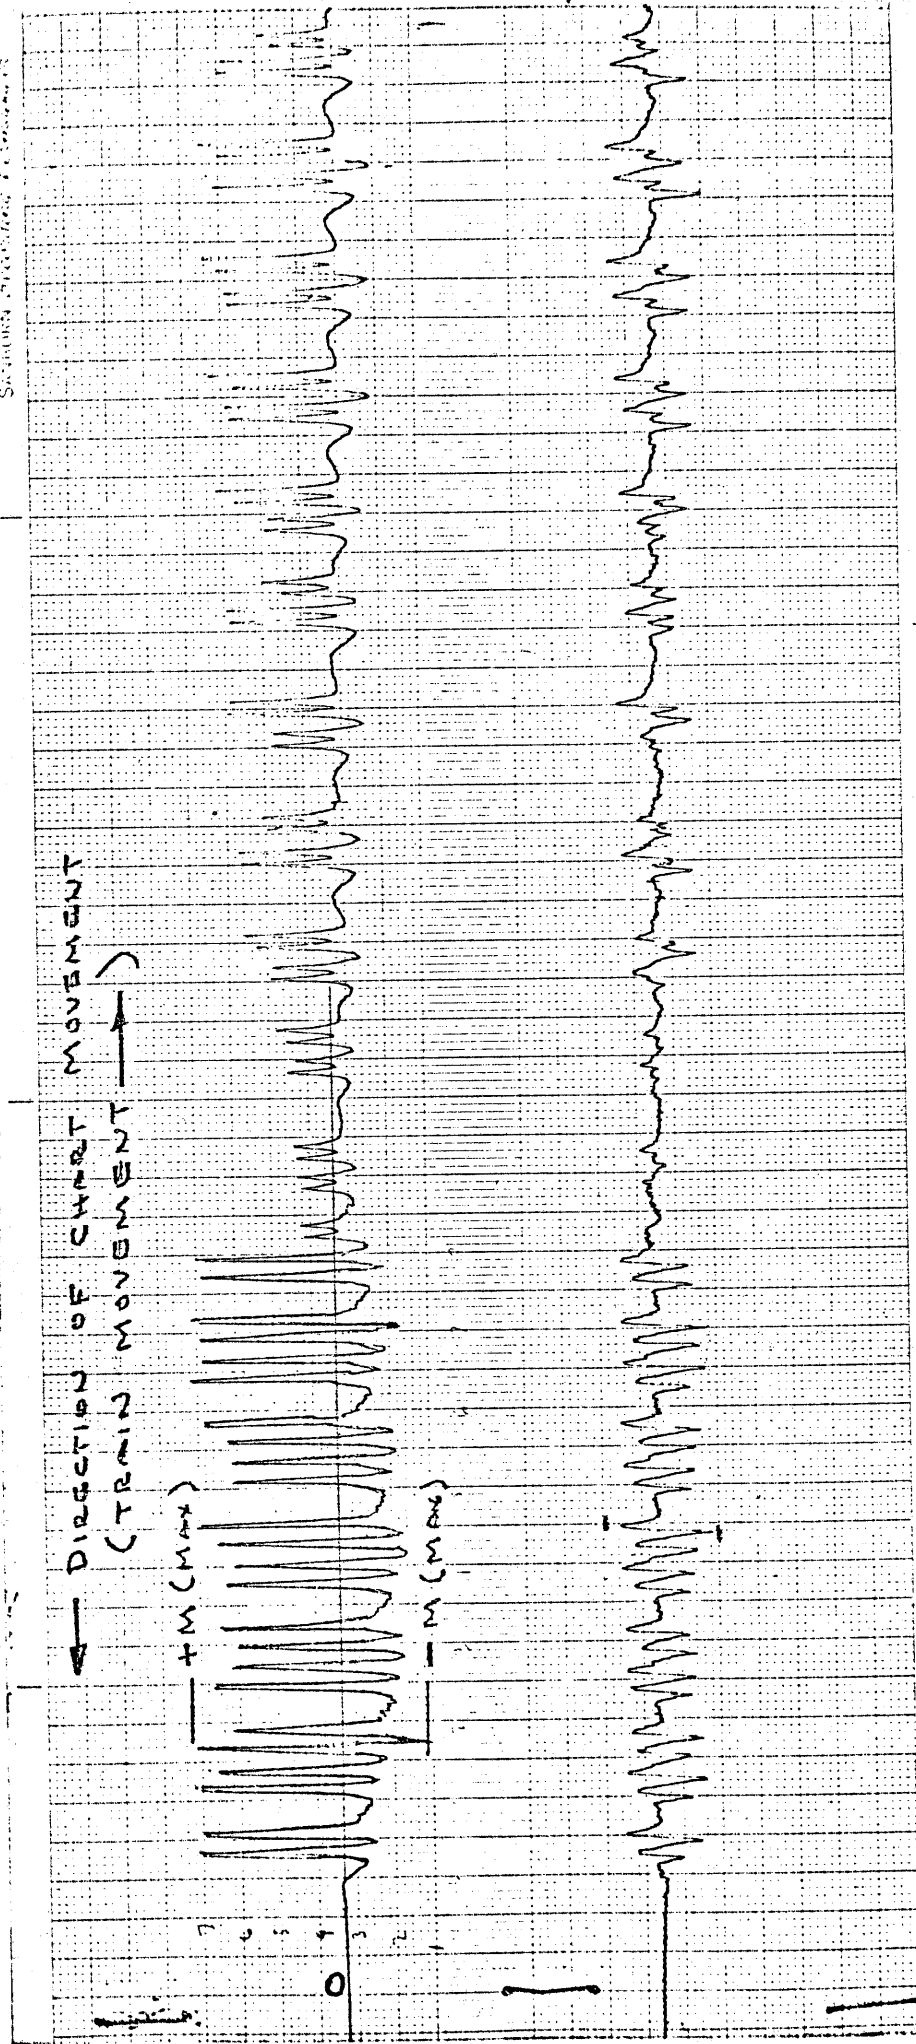 ← DIRECTION OF CHART MOVEMENT
(TRAIN MOVEMENT →)
+M (MAX)
-M (MAX)
0
7
6
5
4
3
2
1